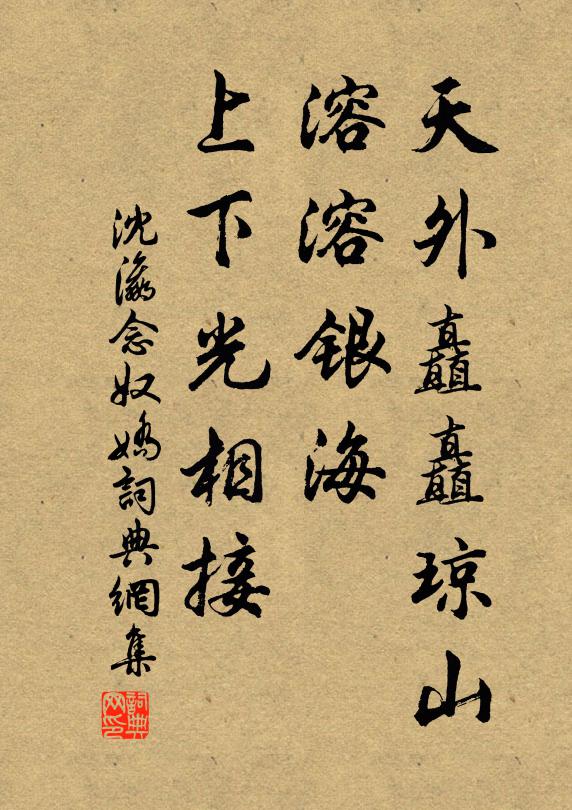 天外矗矗琼山
溶溶银海
上下光相接
沈瀛念奴嬌詞典網集
詞典网印